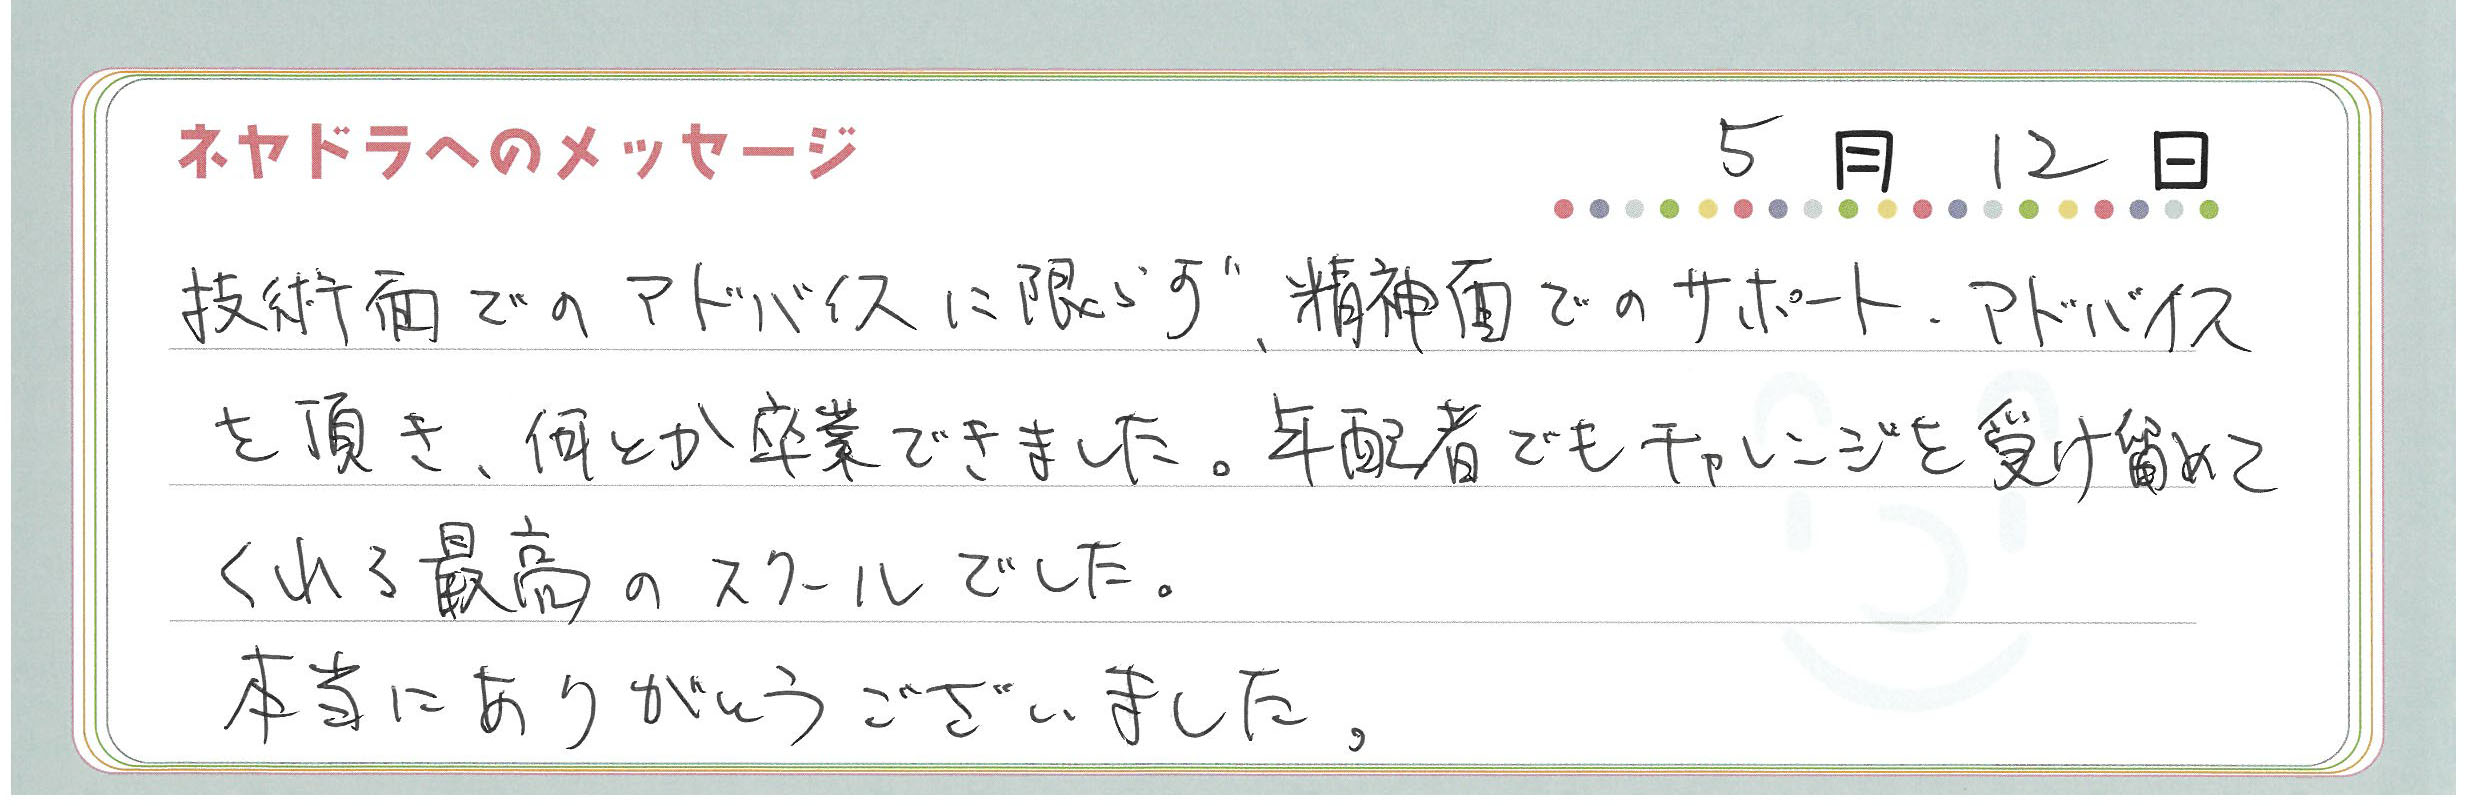 ネヤドラへのメッセージ
5月12日
技術面でのアドバイスに限らず、精神面でのサポート・アドバイス
を頂き、何とか卒業できました。年配者でもチャレンジを受け留めて
くれる最高のスクールでした。
本当にありがとうございました。